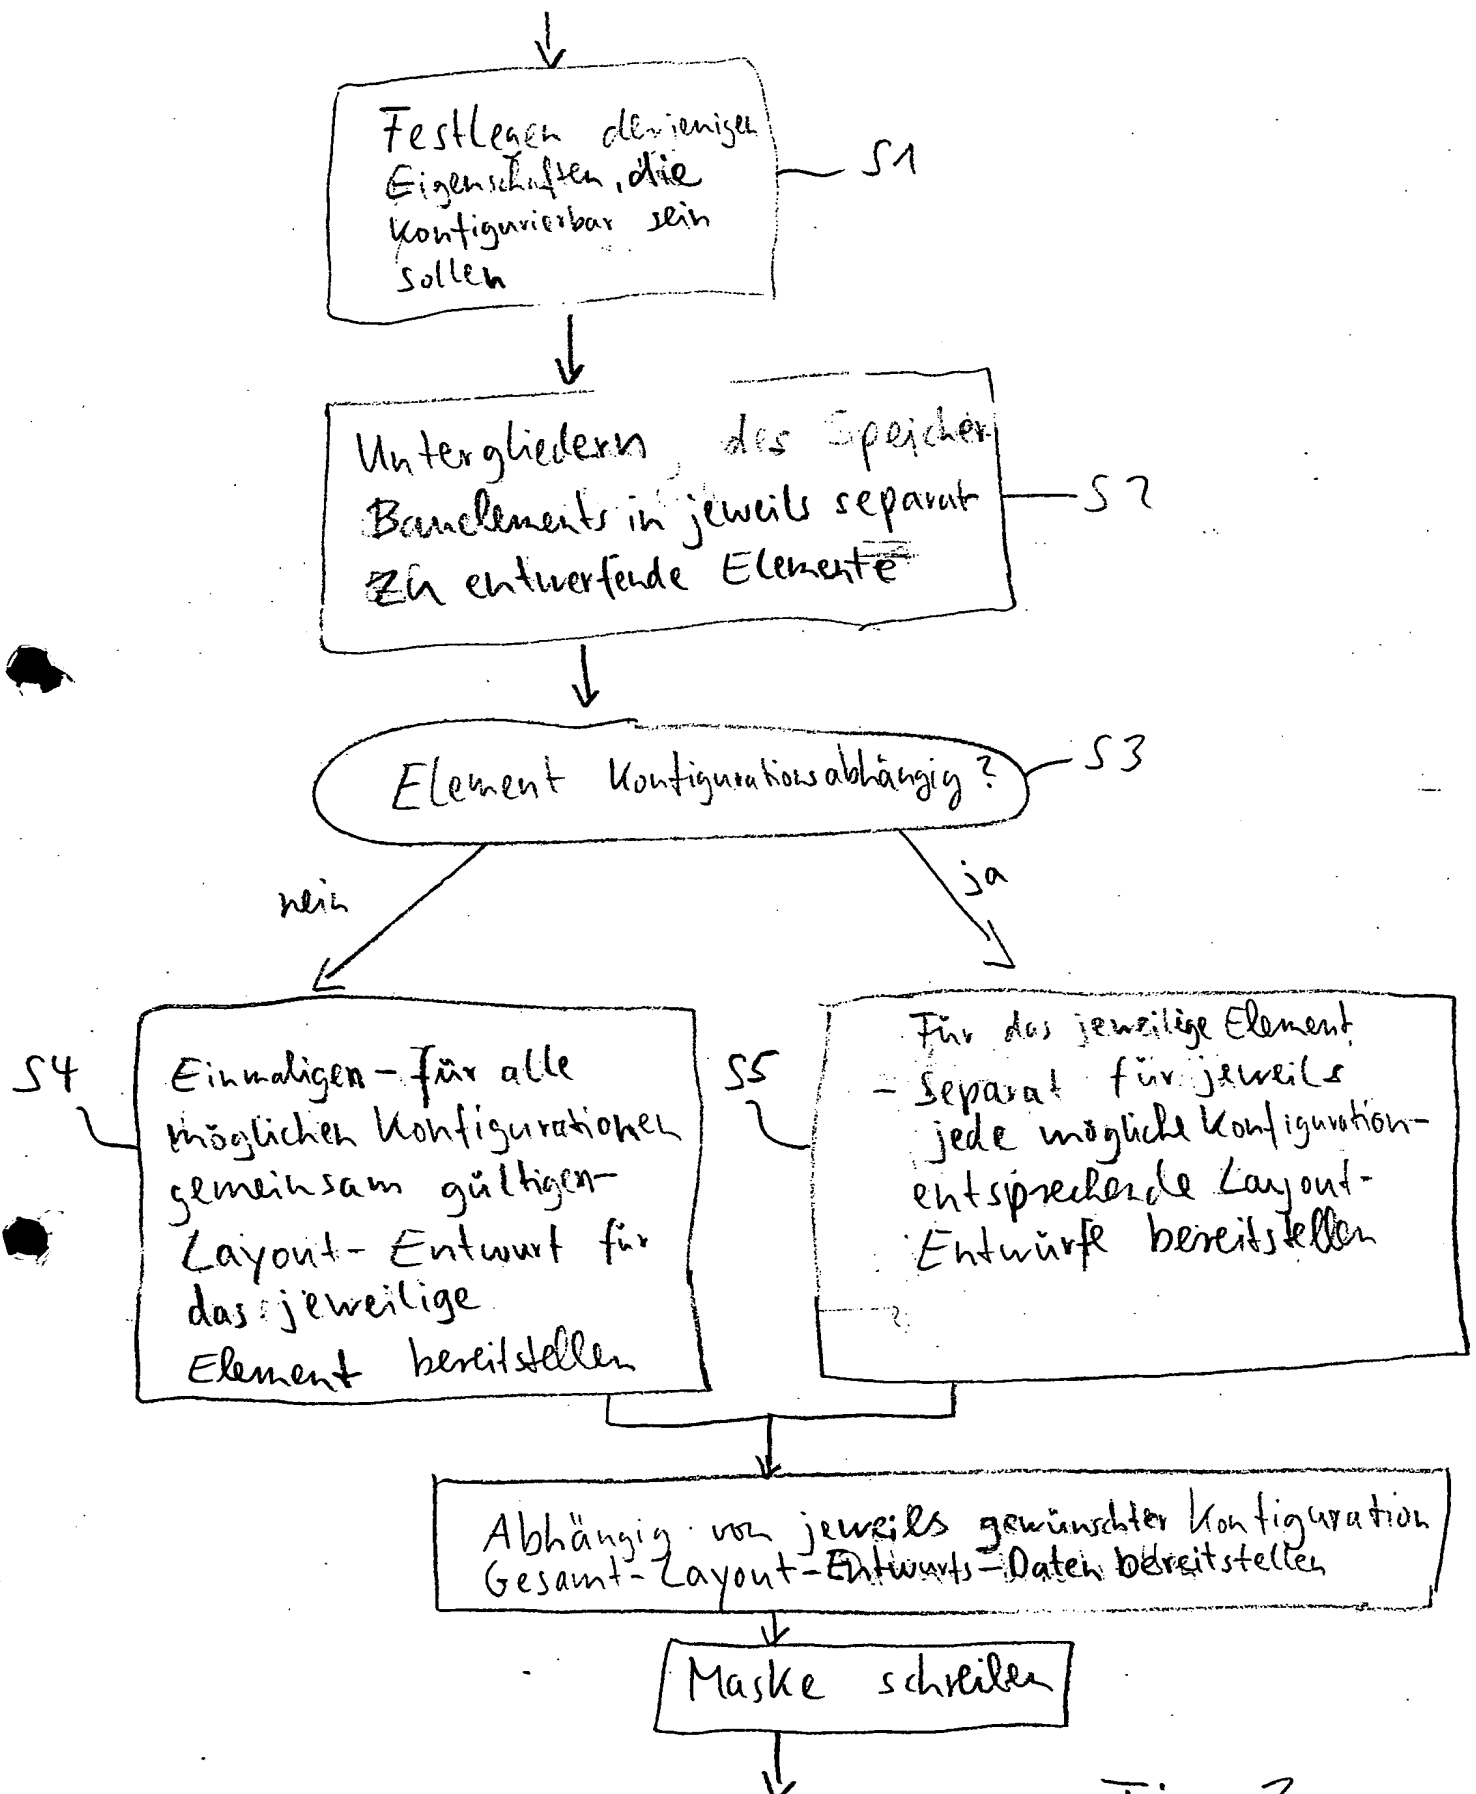 Festlegen derjenigen
Eigenschaften, die
konfigurierbar sein
sollen
S1
Untergliedern des Speicher
Bauelements in jeweils separat
zu entwerfende Elemente
S2
Element konfigurationsabhängig?
S3
nein
ja
S4
Einmaligen - für alle
möglichen Konfigurationen
gemeinsam gültigen -
Layout-Entwurf für
das jeweilige
Element bereitstellen
S5
Für das jeweilige Element
- separat für jeweils
jede mögliche Konfiguration -
entsprechende Layout-
Entwürfe bereitstellen
Abhängig von jeweils gewünschter Konfiguration
Gesamt-Layout-Entwurfs-Daten bereitstellen
Maske schreiben